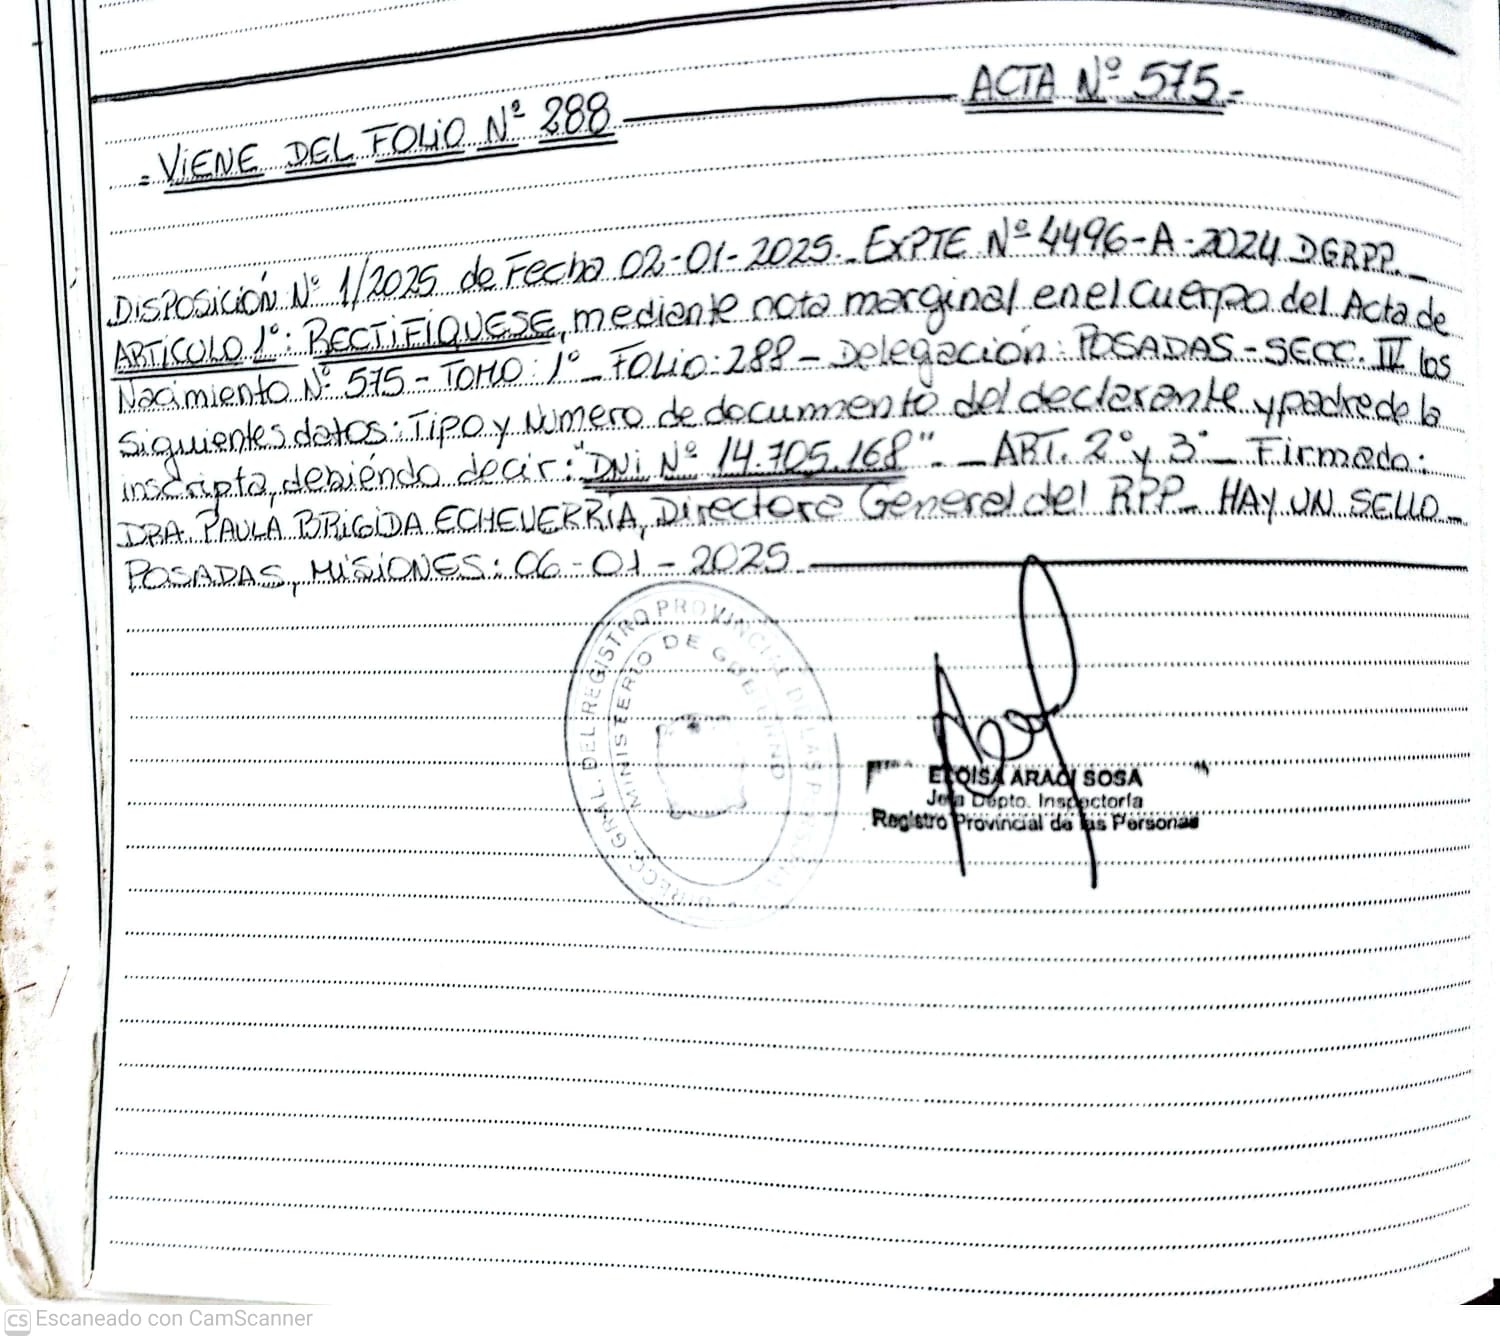 = VIENE DEL FOLIO Nº 288 ACTA Nº 575.-
DISPOSICIÓN Nº 1/2025 de Fecha 02-01-2025.- EXPTE Nº 4496-A-2024 DGRPP.-
ARTICULO 1º: RECTIFIQUESE, mediante nota marginal en el Cuerpo del Acta de
Nacimiento Nº 575 - TOMO: 1º - FOLIO: 288 - Delegación: POSADAS - SECC. IV los
siguientes datos: Tipo y Número de documento del declarante y padre de la
inscripta, debiéndo decir: "DNI Nº 14.705.168". - ART. 2º y 3º - Firmado:
DRA. PAULA BRIGIDA ECHEVERRIA, Directora General del RPP - HAY UN SELLO -
POSADAS, MISIONES: 06-01-2025
DIRECC. GRAL. DEL REGISTRO PROVINCIAL DE LAS PERSONAS
MINISTERIO DE GOBIERNO
ELOISA ARACI SOSA
Jefa Depto. Inspectoría
Registro Provincial de las Personas
CS Escaneado con CamScanner